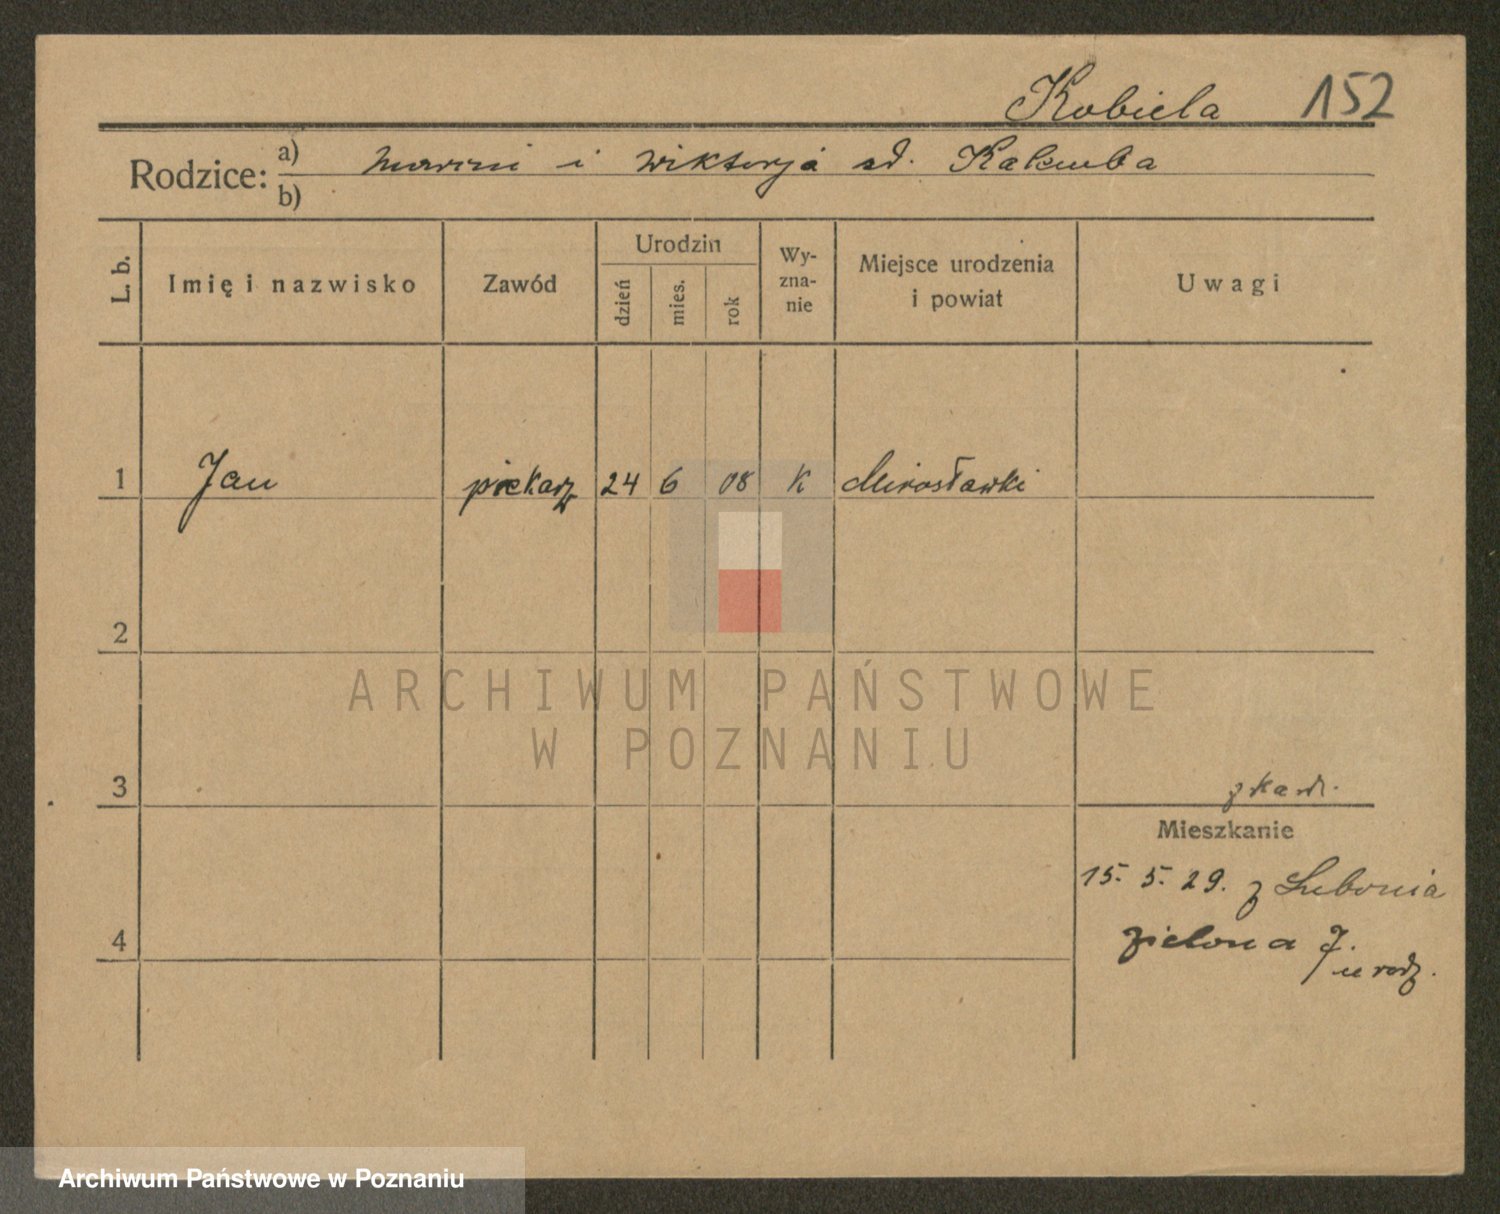 Kobiela 152
Rodzice: a) Marcin i Wiktorja Kalemba
b)
L. b.
Imię i nazwisko
Zawód
Urodzin
dzień
mies.
rok
Wy-
zna-
nie
Miejsce urodzenia
i powiat
Uwagi
1 Jan piekarz 24 6 08 K Mirosławki
2
ARCHIWUM PAŃSTWOWE
W POZNANIU
3
Mieszkanie
15. 5. 29. z Lubonia
4
Zielona 7.
u rodz.
Archiwum Państwowe w Poznaniu